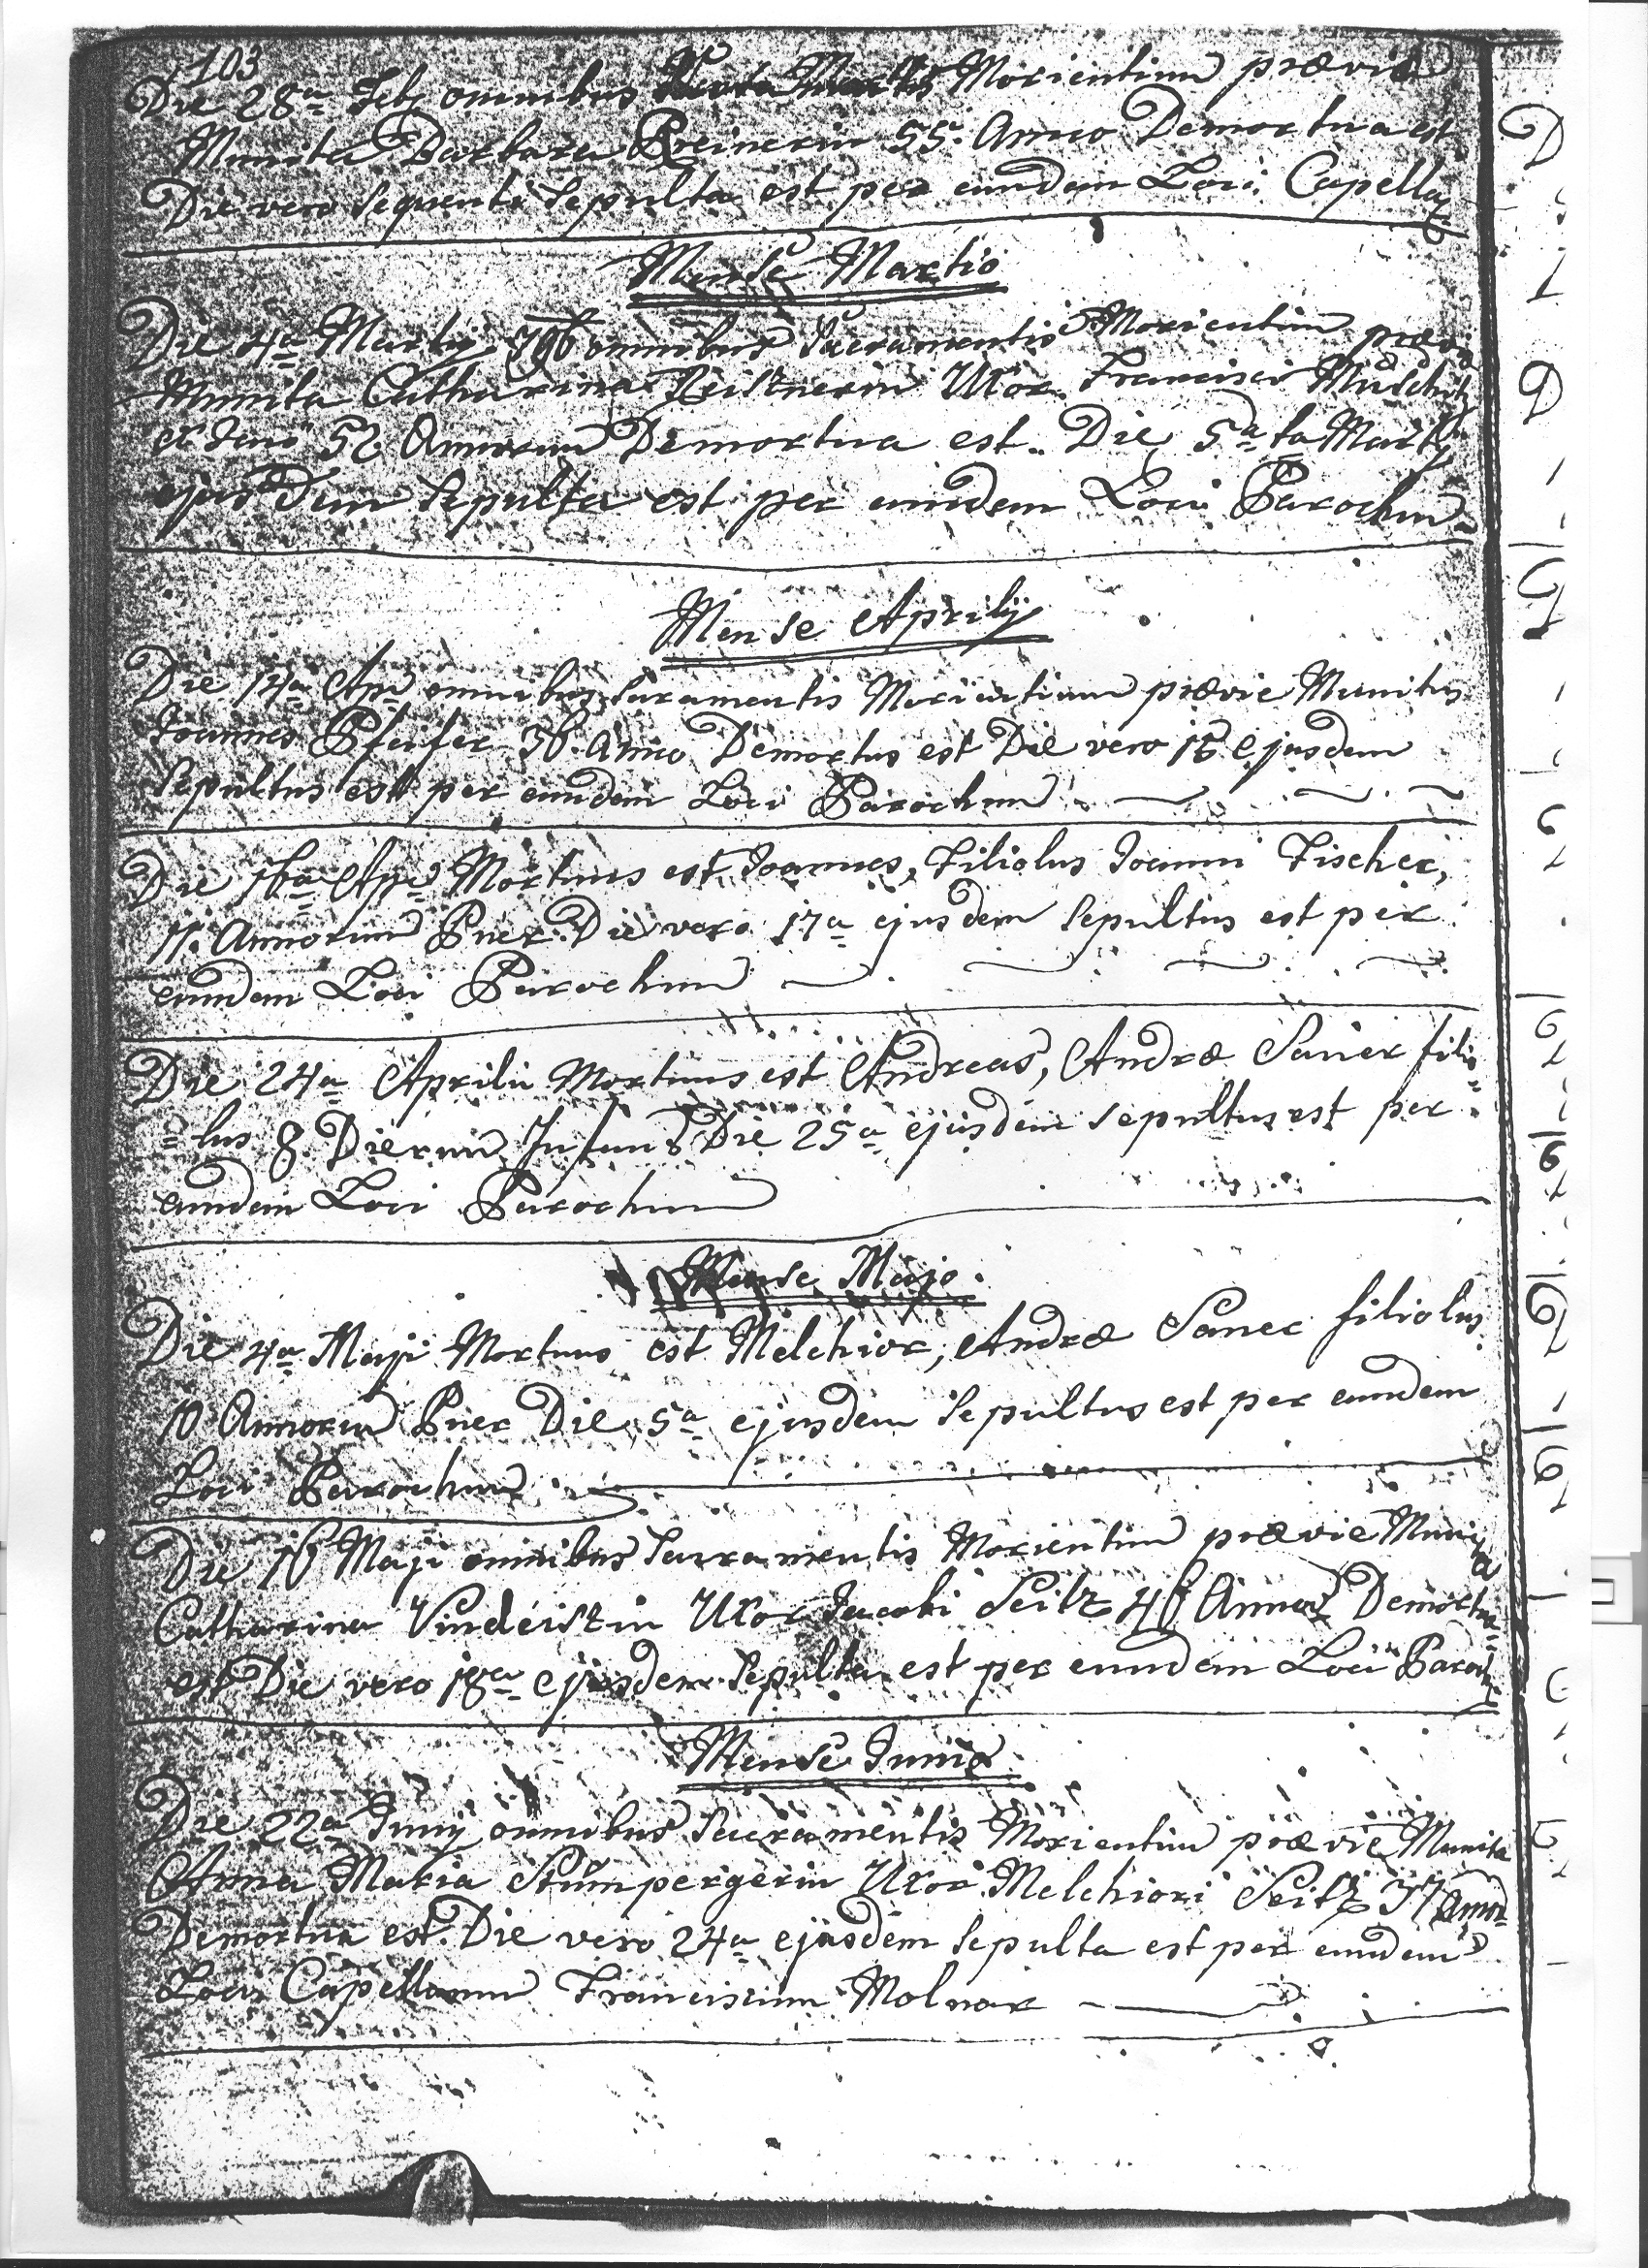 103
Die 28a Feb omnibus Morientium prævie
Munita Barbara Preinerin 55. Anno Demortua est
Die vero sequenti Sepulta est per eundem Loci Capella
Mense Martio
Die 4a Martij 796 omnibus Sacramentis Morientium prævie
Munita Catharina Uxor Francisci
52 Annorum Demortua est. Die 5ta Martij
ejusdem Sepulta est per eundem Loci Parochum
Mense Aprilij
Die 14a Apr omnibus Sacramentis Morientium prævie Munitus
Joannes Pfeifer Anno Demortus est Die vero 16 ejusdem
Sepultus est per eundem Loci Parochum
Die 16a Apr Mortuus est Joannes, Filiolus Joanni Fischer,
11. Annorum Puer. Die vero 17a ejusdem Sepultus est per
eundem Loci Parochum
Die 24a Aprilii Mortuus est Andreas, Andræ Saner filio=
=lus 8. Dierum Infans Die 25a ejusdem sepultus est per
eundem Loci Parochum
Mense Majo.
Die 4a Maji Mortuus est Melchior, Andræ Saner filiolus
10 Annorum Puer Die 5a ejusdem Sepultus est per eundem
Loci Parochum
Die 16 Maji omnibus Sacramentis Morientium prævie Munita
Catharina Vindeiszin Uxor Jacobi Seitz 46 Annor Demortua
est Die vero 18a ejusdem Sepulta est per eundem Loci Paroch
Mense Junio
Die 22a Junij omnibus Sacramentis Morientium prævie Munita
Anna Maria Stumpergerin Uxor Melchiori Seitz Annor
Demortua est. Die vero 24a ejusdem Sepulta est per eundem
Loci Capellanum Franciscum Molnar